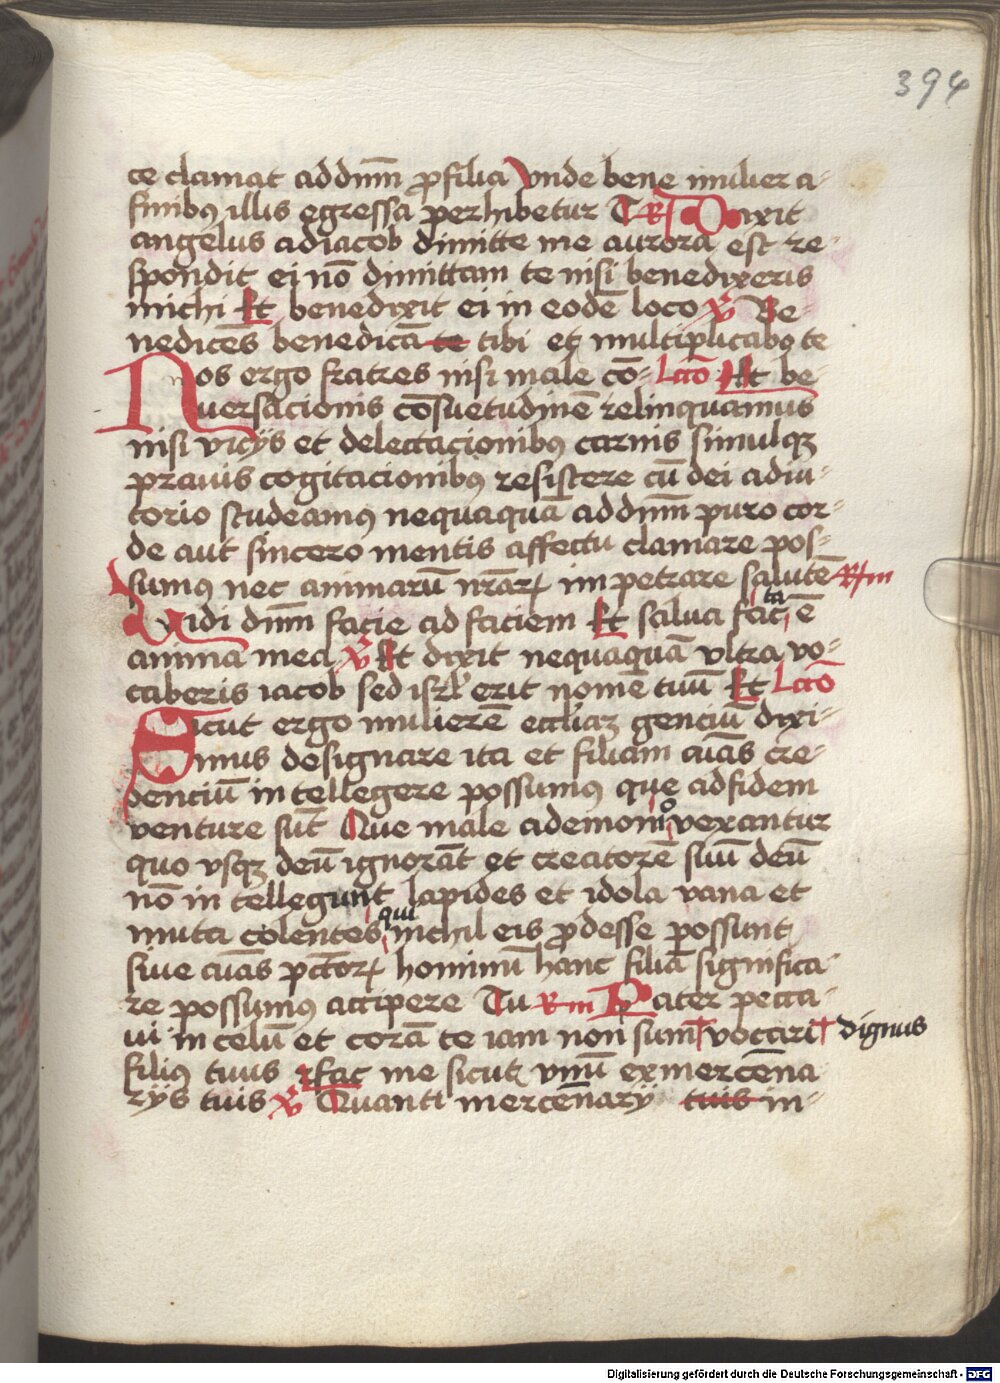 394
ce clamat ad dnm̄ ꝓ filia Vnde bene mulier a-
finibꝰ illis egressa perhibetur T R̸ Dixit
angelus ad iacob dimitte me aurora est re-
spondit ei nō dimittam te nisi benedixeris
michi Et benedixit ei in eodē loco V̸ Be-
nedicēs benedicā te tibi et multiplicabo te
Nos ergo fratres nisi male cō- Lcc̄o Et be
uersacionis cōsuetudinē relinquamus
nisi vicijs et delectacionibꝰ carnis simulqꝫ
prauis cogitacionibꝰ resistere cū dei adiu-
torio studeamꝰ nequaqua ad dnm̄ puro cor-
de aut sincero mentis affectu clamare pos-
sumꝰ nec animarū nr̄aꝝ impetrare salutē R̸m
Vidi dnm̄ facie ad faciem Et salua facta ē
anima mea V̸ Et dixit nequaquā vltra vo-
caberis iacob sed isrl̄ erit nomē tuū Et Lcc̄o
Sicut ergo mulierē eccl̄iaꝫ genciū dixi-
mus designare ita et filiam cuīas cre-
denciū intellegere possumꝰ que ad fidem
venture sūt Que male a demonio vexantur
quo vsqꝫ deū ignorāt et creatorē suū deū
nō intellegunt lapides et idola vana et
muta colentes qui nichil eis ꝓdesse possunt
siue cuīas pctōꝝ hominū hanc filiā significa-
re possumꝰ accipere Tu R̸m Pater pecca-
ui in celū et corā te iam non sum voccari dignus
filiꝰ tuus fac me sicut vnū ex mercēna
rijs tuis V̸ Quanti mercēnarij tuis in-
Digitalisierung gefördert durch die Deutsche Forschungsgemeinschaft - DFG